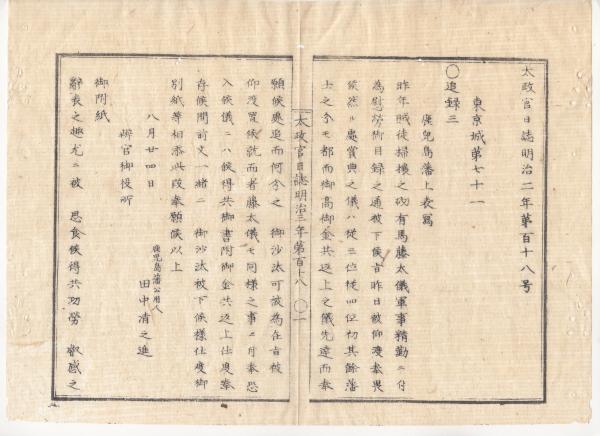 太政官日誌明治二年第百十八号
東京城第七十一
〇追録三
鹿児島藩上表写
昨年賊徒掃攘之砌有馬藤太儀軍事精勤ニ付
為慰労御目録之通被下候旨昨日被仰渡奉畏
候然ル処賞典之儀ハ従三位従四位初其余藩
士之分モ都而御高御金共返上之儀先達而奉
願候処追而何分之 御沙汰可被為在旨被
仰渡置候就而者藤太儀モ同様之事ニ付奉恐
入候儀ニハ候得共御書附御金共返上仕度奉
存候間前文一緒ニ 御沙汰被下候様仕度御
別紙等相添此段奉願候以上
八月廿四日
鹿児島藩公用人
田中清之進
辨官御役所
御附紙
辞表之趣尤ニ被 思食候得共功労 叡感之
太政官日誌明治二年第百十八 〇 一